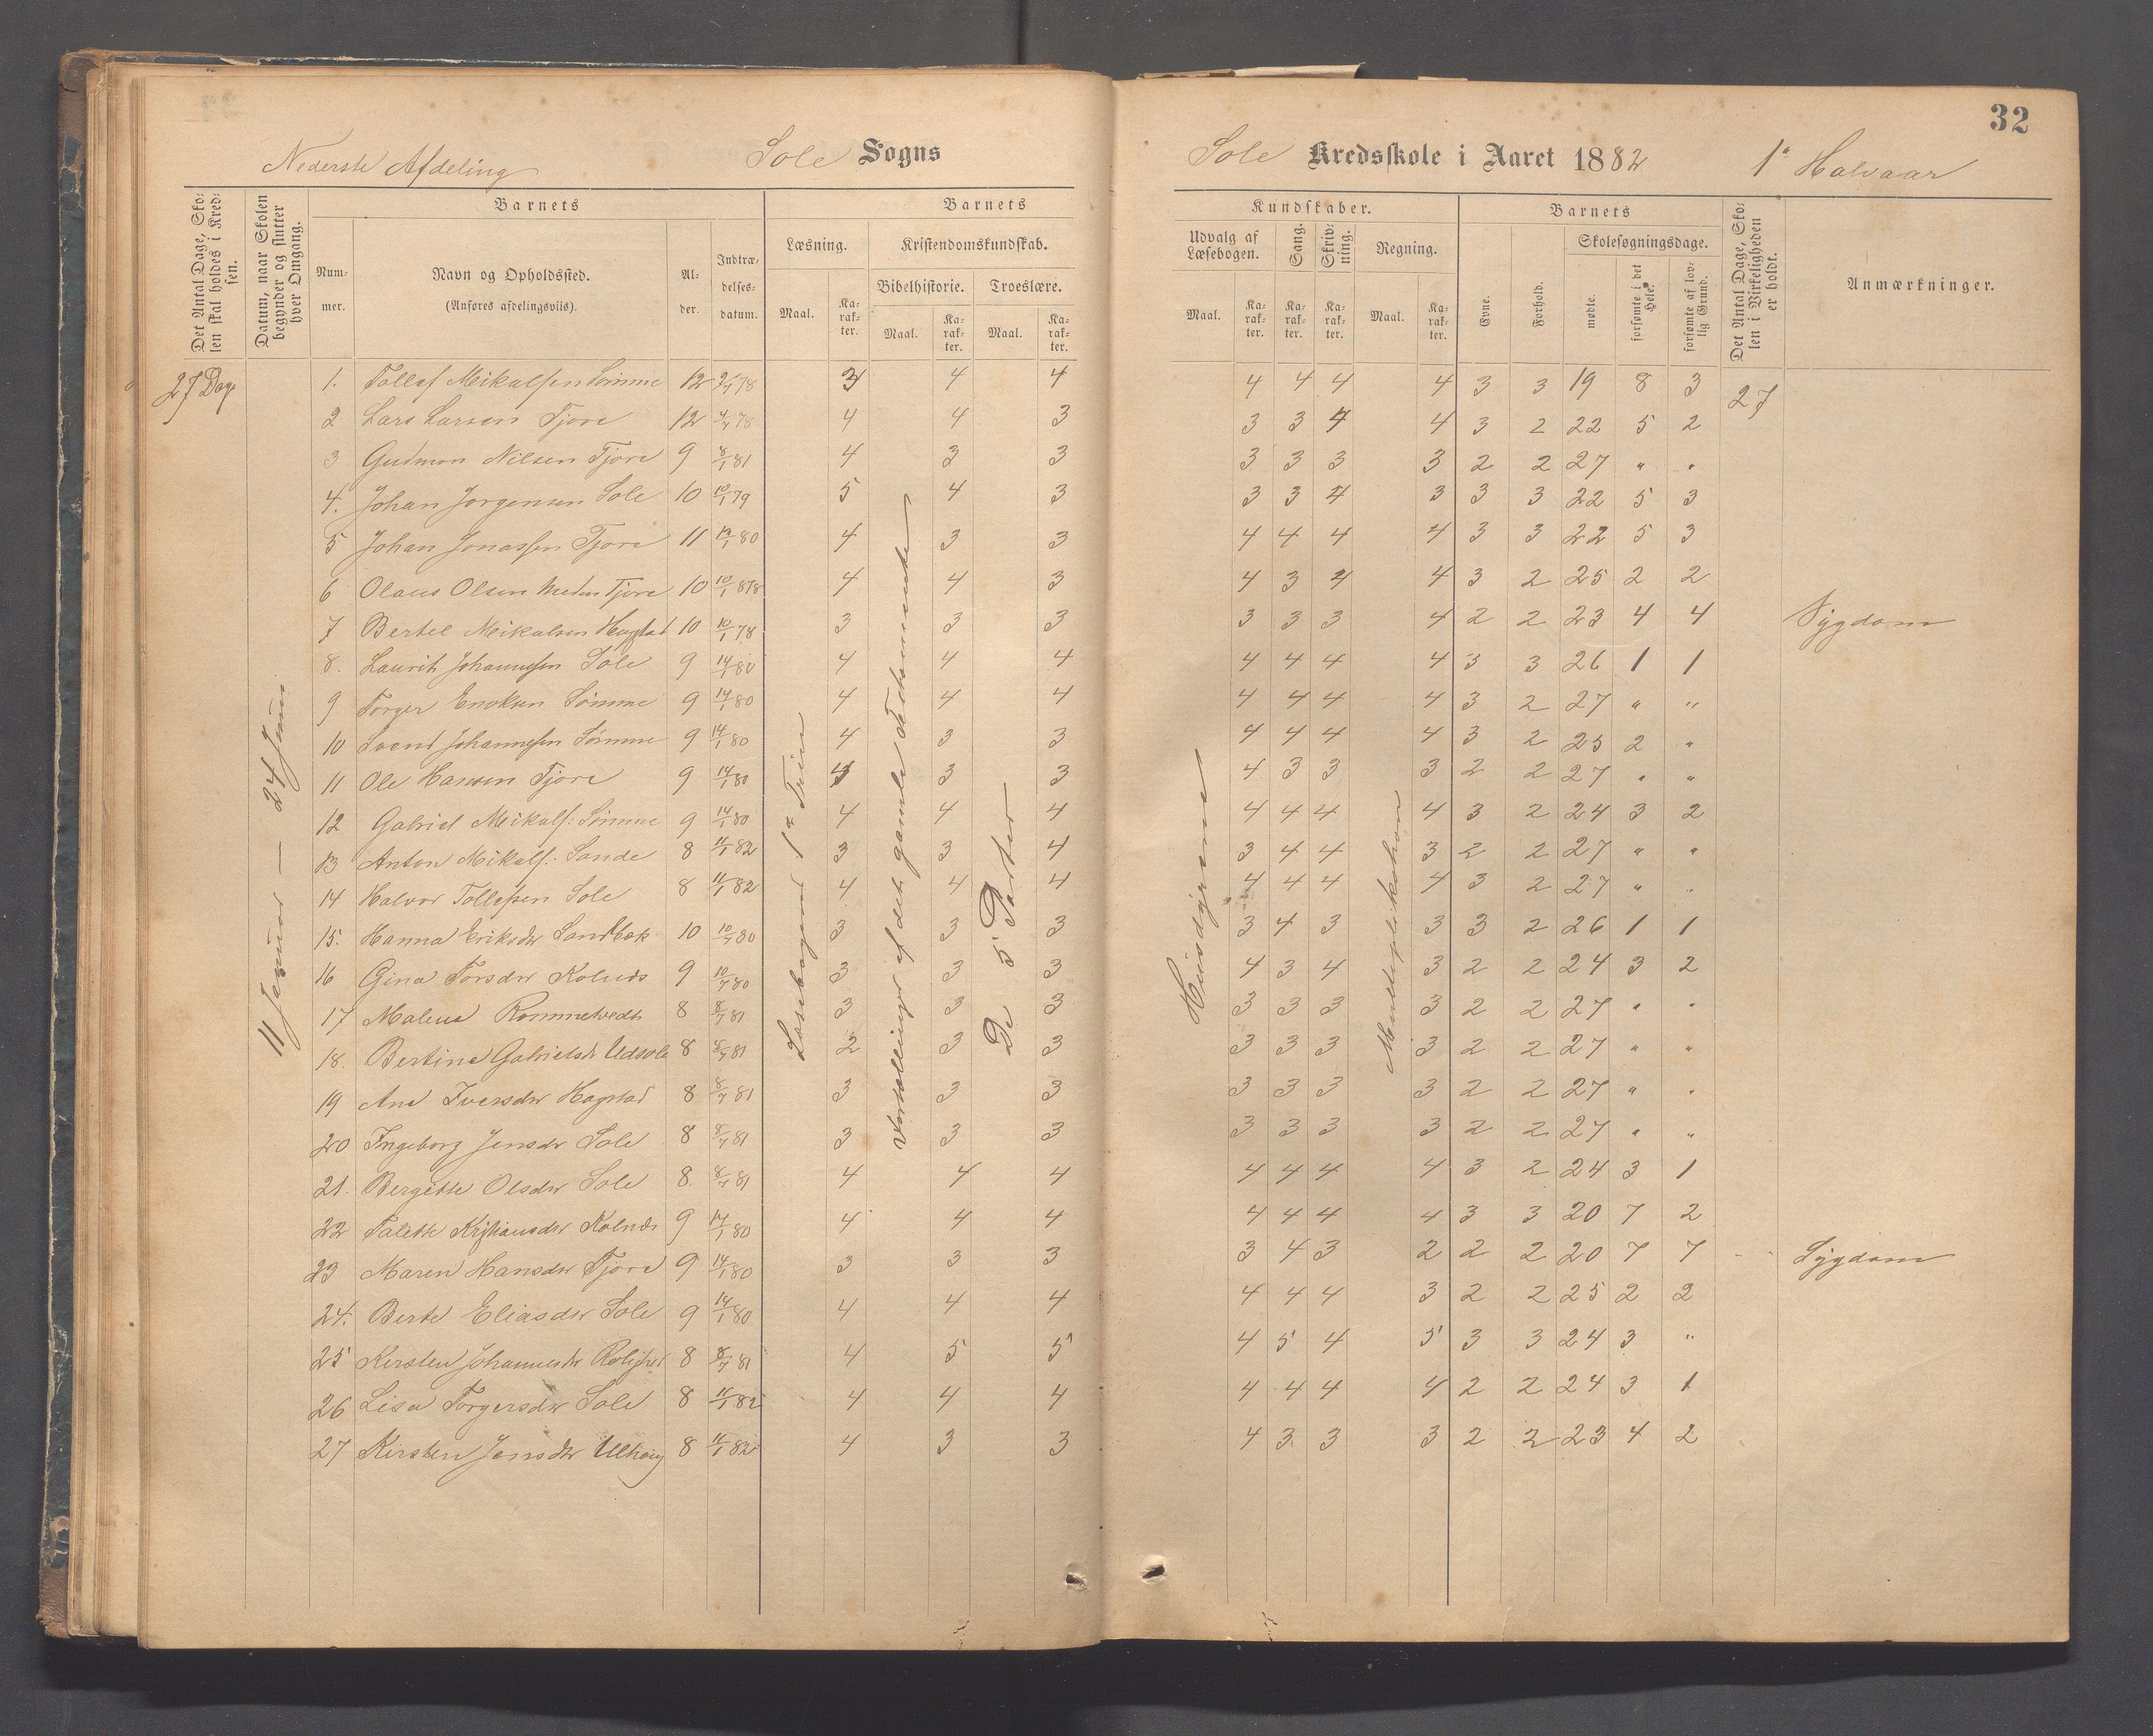 32
Nederste Afdeling Sole Sogns
Sole Kredsskole i Aaret 1882 1ste Halvaar
Det Antal Dage, Skolen skal holdes i Kredsen.
Datum, naar Skolen begynder og slutter hver Omgang.
Barnets
Nummer.
Navn og Opholdssted.
(Anføres afdelingsviis).
Alder.
Indtrædelsesdatum.
Barnets
Læsning.
Maal. Karakter.
Kristendomskundskab.
Bibelhistorie. Troeslære.
Maal. Karakter. Maal. Karakter.
Kundskaber.
Udvalg af Læsebogen. Sang. Skrivning. Regning.
Maal. Karakter. Karakter. Karakter. Maal. Karakter.
Barnets
Evne. Forhold.
Skolesøgningsdage.
mødte. forsømte i det Hele. forsømte af lovlig Grund.
Det Antal Dage, Skolen i Virkeligheden er holdt.
Anmærkninger.
27 Dage
11 Januar — 24 Juni
Læsebogens 1ste Trin
Fortællinger af det gamle Testamente
De 5 Parter
Husdyrene
Multiplikation
27
1. Tollef Mikalsen Sømme 12 9/7 78 3 4 4 4 4 4 4 3 3 19 8 3
2 Lars Larsen Tjore 12 4/4 78 4 4 3 3 3 4 4 3 2 22 5 2
3 Gudmon Nilsen Tjore 9 8/1 81 4 3 3 3 3 3 3 2 2 27 " "
4. Johan Jørgensen Sole 10 10/1 79 5 4 3 3 3 4 3 3 3 22 5 3
5 Johan Jonassen Tjore 11 12/1 80 4 3 3 4 4 4 4 3 3 22 5 3
6 Olaus Olsen Tjore 10 10/1 878 4 4 3 4 3 4 4 3 2 25 2 2
7 Bertel Mikalsen Hagstad 10 10/1 78 3 3 3 3 3 3 4 2 2 23 4 4 Sygdom
8. Laurits Johannesen Sole 9 14/1 80 4 4 4 4 4 4 4 3 3 26 1 1
9 Torger Enoksen Sømme 9 14/1 80 4 4 4 4 4 4 4 3 2 27 " "
10 Svend Johannesen Sømme 9 14/1 80 4 3 3 4 4 4 4 3 2 25 2 "
11 Ole Hansen Tjore 9 14/1 80 4 3 3 4 3 3 3 2 2 27 " "
12 Gabriel Mikals: Sømme 9 14/1 80 4 4 4 4 4 4 4 3 2 24 3 2
13 Anton Mikals: Sande 8 11/1 82 3 3 4 3 4 4 3 2 2 27 " "
14 Halvor Tollefsen Sole 8 11/1 82 4 4 4 4 4 4 4 3 2 27 " "
15. Hanna Eriksdtr Sandbæk 10 10/7 80 3 3 3 3 4 3 3 3 2 26 1 1
16 Gina Torsdtr Kolnes 9 10/7 80 3 3 3 4 3 4 3 2 2 24 3 2
17 Malena Rommetvedt 8 8/7 81 3 3 3 3 3 3 3 2 2 27 " "
18. Bertine Gabrielsdr Udsola 8 8/7 81 2 3 3 3 3 3 3 2 2 27 " "
19 Ane Iversdtr Hagstad 8 8/7 81 3 3 3 3 3 3 3 2 2 27 " "
20 Ingeborg Jensdtr Sole 8 8/7 81 3 3 3 3 3 3 3 2 2 27 " "
21. Bergitte Olsdtr Sole 8. 8/7 81 4 4 4 4 4 4 4 3 2 24 3 1
22 Talette Kristiansdtr Kolnes 9 14/1 80 4 4 4 4 4 4 4 3 3 20 7 2
23 Maren Hansdtr Tjore 9 14/1 80 3 3 3 3 4 3 2 2 2 20 7 7 Sygdom
24. Berte Eliasdtr Sole 9 14/1 80 4 4 4 4 4 4 3 2 2 25 2 2
25 Kersten Johannesdtr Rolighed 8 8/7 81 4 5 5 4 5 4 5 3 3 24 3 "
26 Lisa Torgersdtr Sole 8 11/1 82 4 4 4 4 4 4 4 2 2 24 3 1
27 Kersten Jensdtr Ulhaug 8 11/1 82 4 3 3 4 3 3 3 2 2 23 4 2